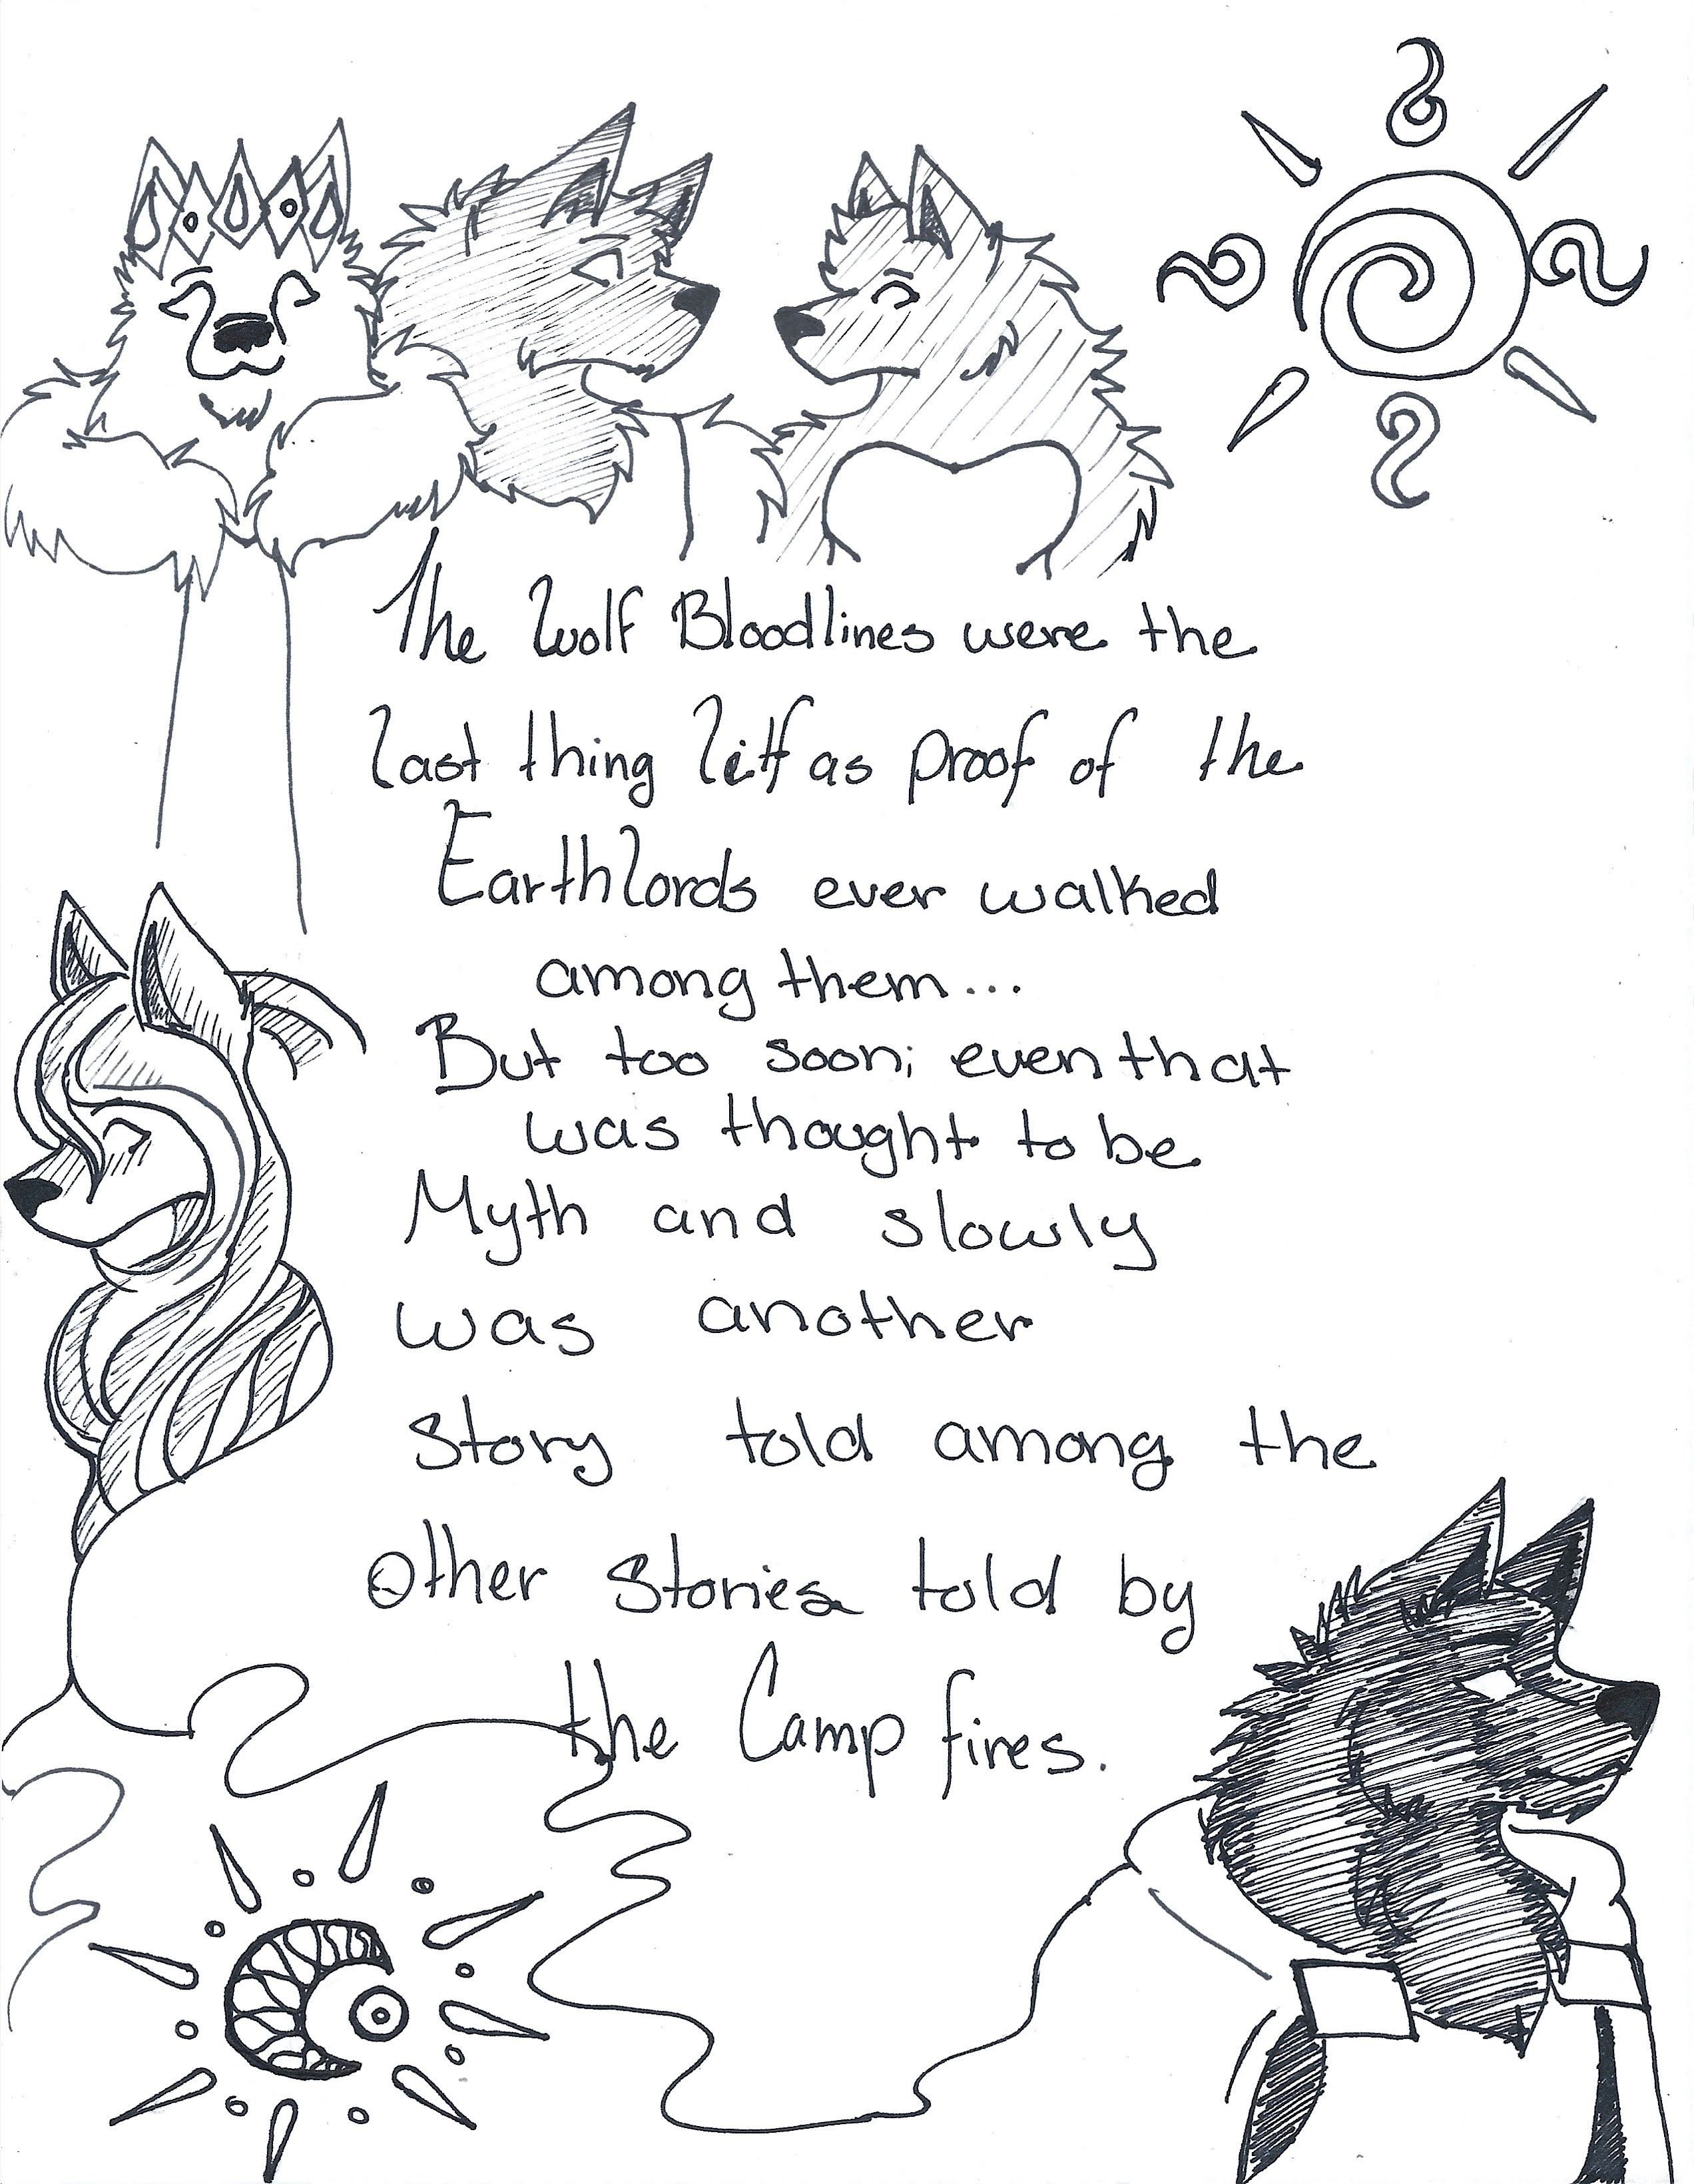 The Wolf Bloodlines were the
last thing left as proof of the
Earthlords ever walked
among them...
But too soon; even that
was thought to be
Myth and slowly
was another
story told among the
other stories told by
the Camp fires.